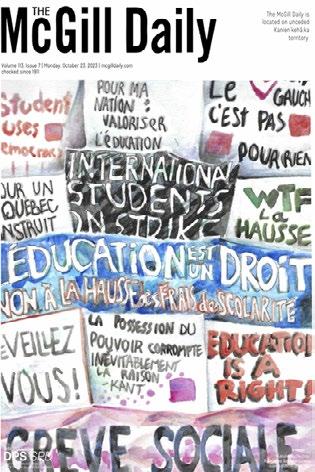 THE
McGill Daily
The McGill Daily is
located on unceded
Kanien'kehá:ka
territory.
Volume 113, Issue 7 | Monday, October 23, 2023 | mcgilldaily.com
Student
uses
emocracy
POUR MA
NATION:
VALORISER
L'ÉDUCATION
Le
GAUCH
C'EST PAS
POUR RIEN
OUR UN
QUÉBEC
NSTRUIT
INTERNATIONAL
STUDENTS
ON STRIKE
WTF
La
HAUSSE
ÉDUCATION EST UN DROIT
NON À LA HAUSSE des FRAIS de SCOLARITÉ
ÉVEILLEZ
VOUS!
LA POSSESSION DU
POUVOIR CORROMPTE
INÉVITABLEMENT
LA RAISON
-KANT.
EDUCATION
IS A
RIGHT!
GRÈVE SOCIALE